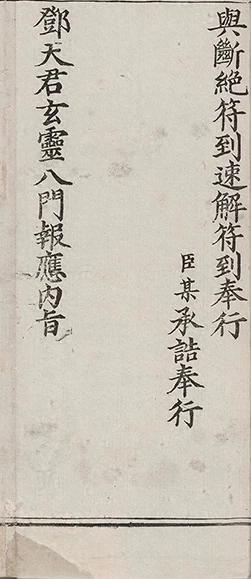 與斷絕符到速解符到奉行
臣某承誥奉行
鄧天君玄靈八門報應內旨